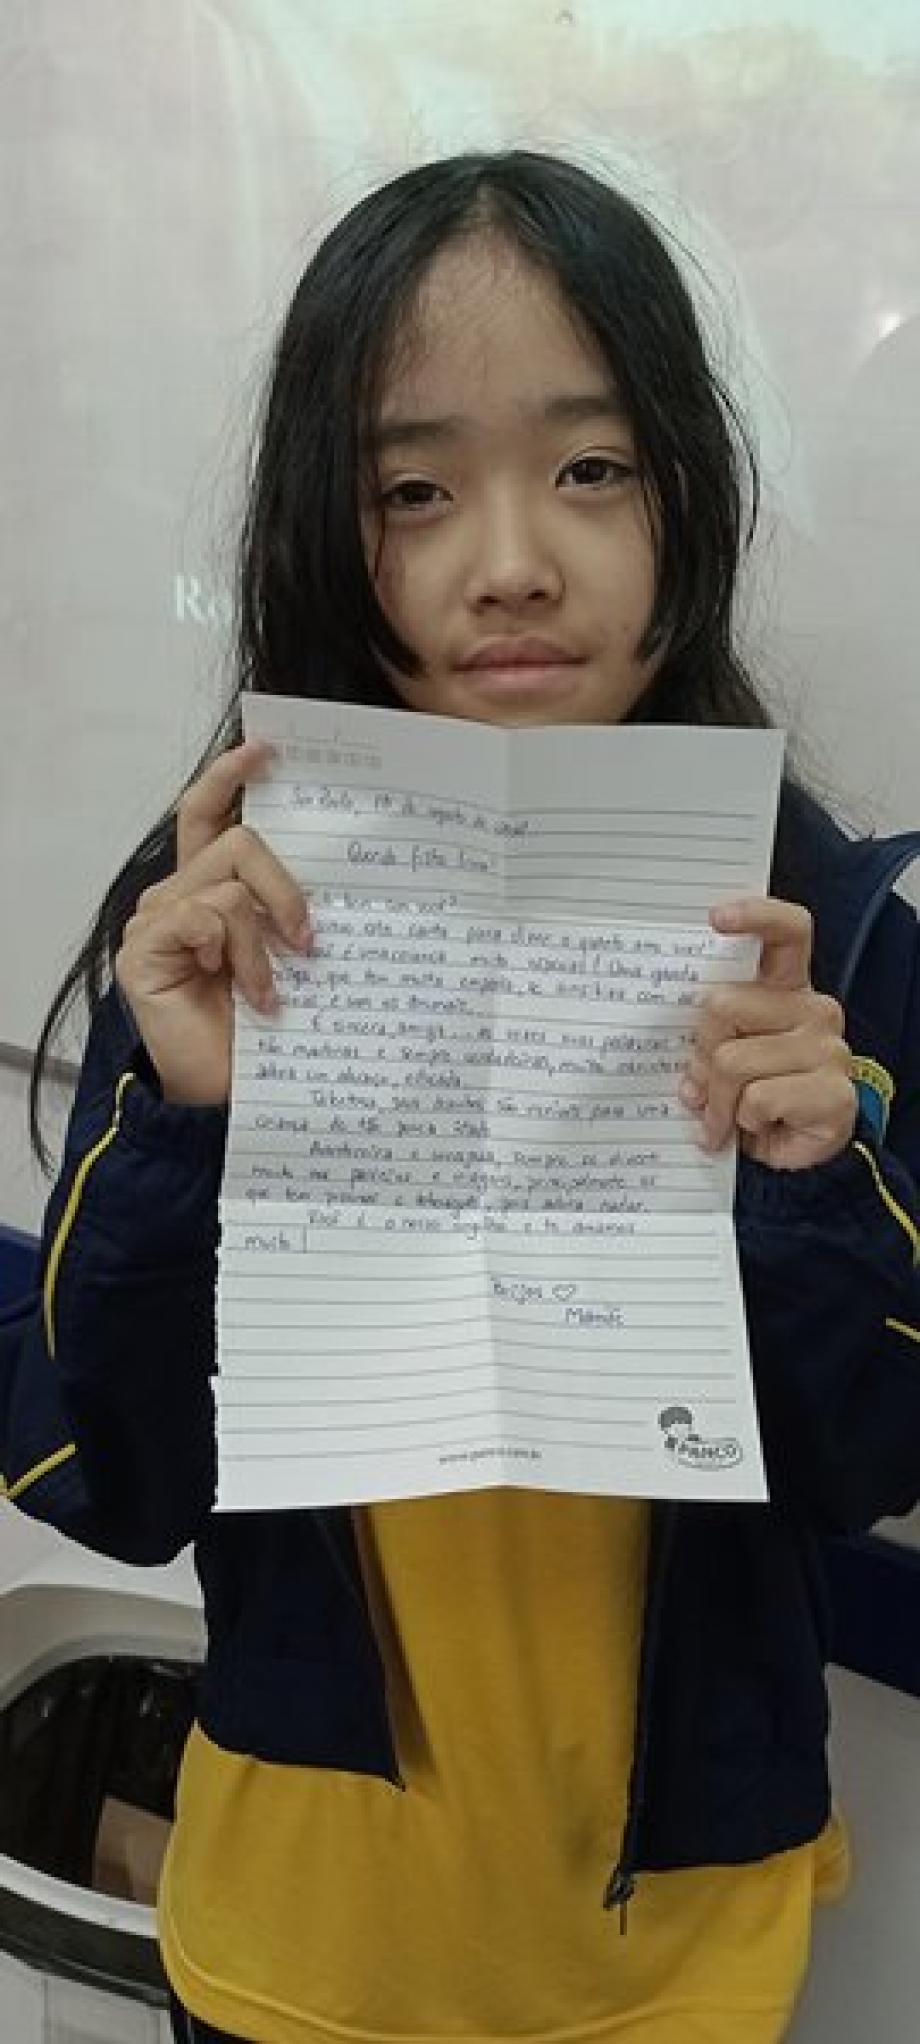 R
São Paulo, 1º de agosto de
Querida filha
tem com você?
esta carta para dizer o quanto amo você!
é uma criança muito especial! Uma grande
amiga, que tem muita empatia, se com as
e com os animais.
É sincera, amiga... às vezes suas palavras
são maduras e sempre verdadeiras, muito
adora um abraço,
Talentosa, seus são incríveis para uma
criança de tão pouca idade
Aventureira e corajosa, sempre se diverte
muito nos passeios e viagens, principalmente os
que tem piscinas e, pois adora nadar.
Você é o nosso orgulho e te amamos
muito!
Beijos ♡
Mamãe
www.panco.com.br
PANCO